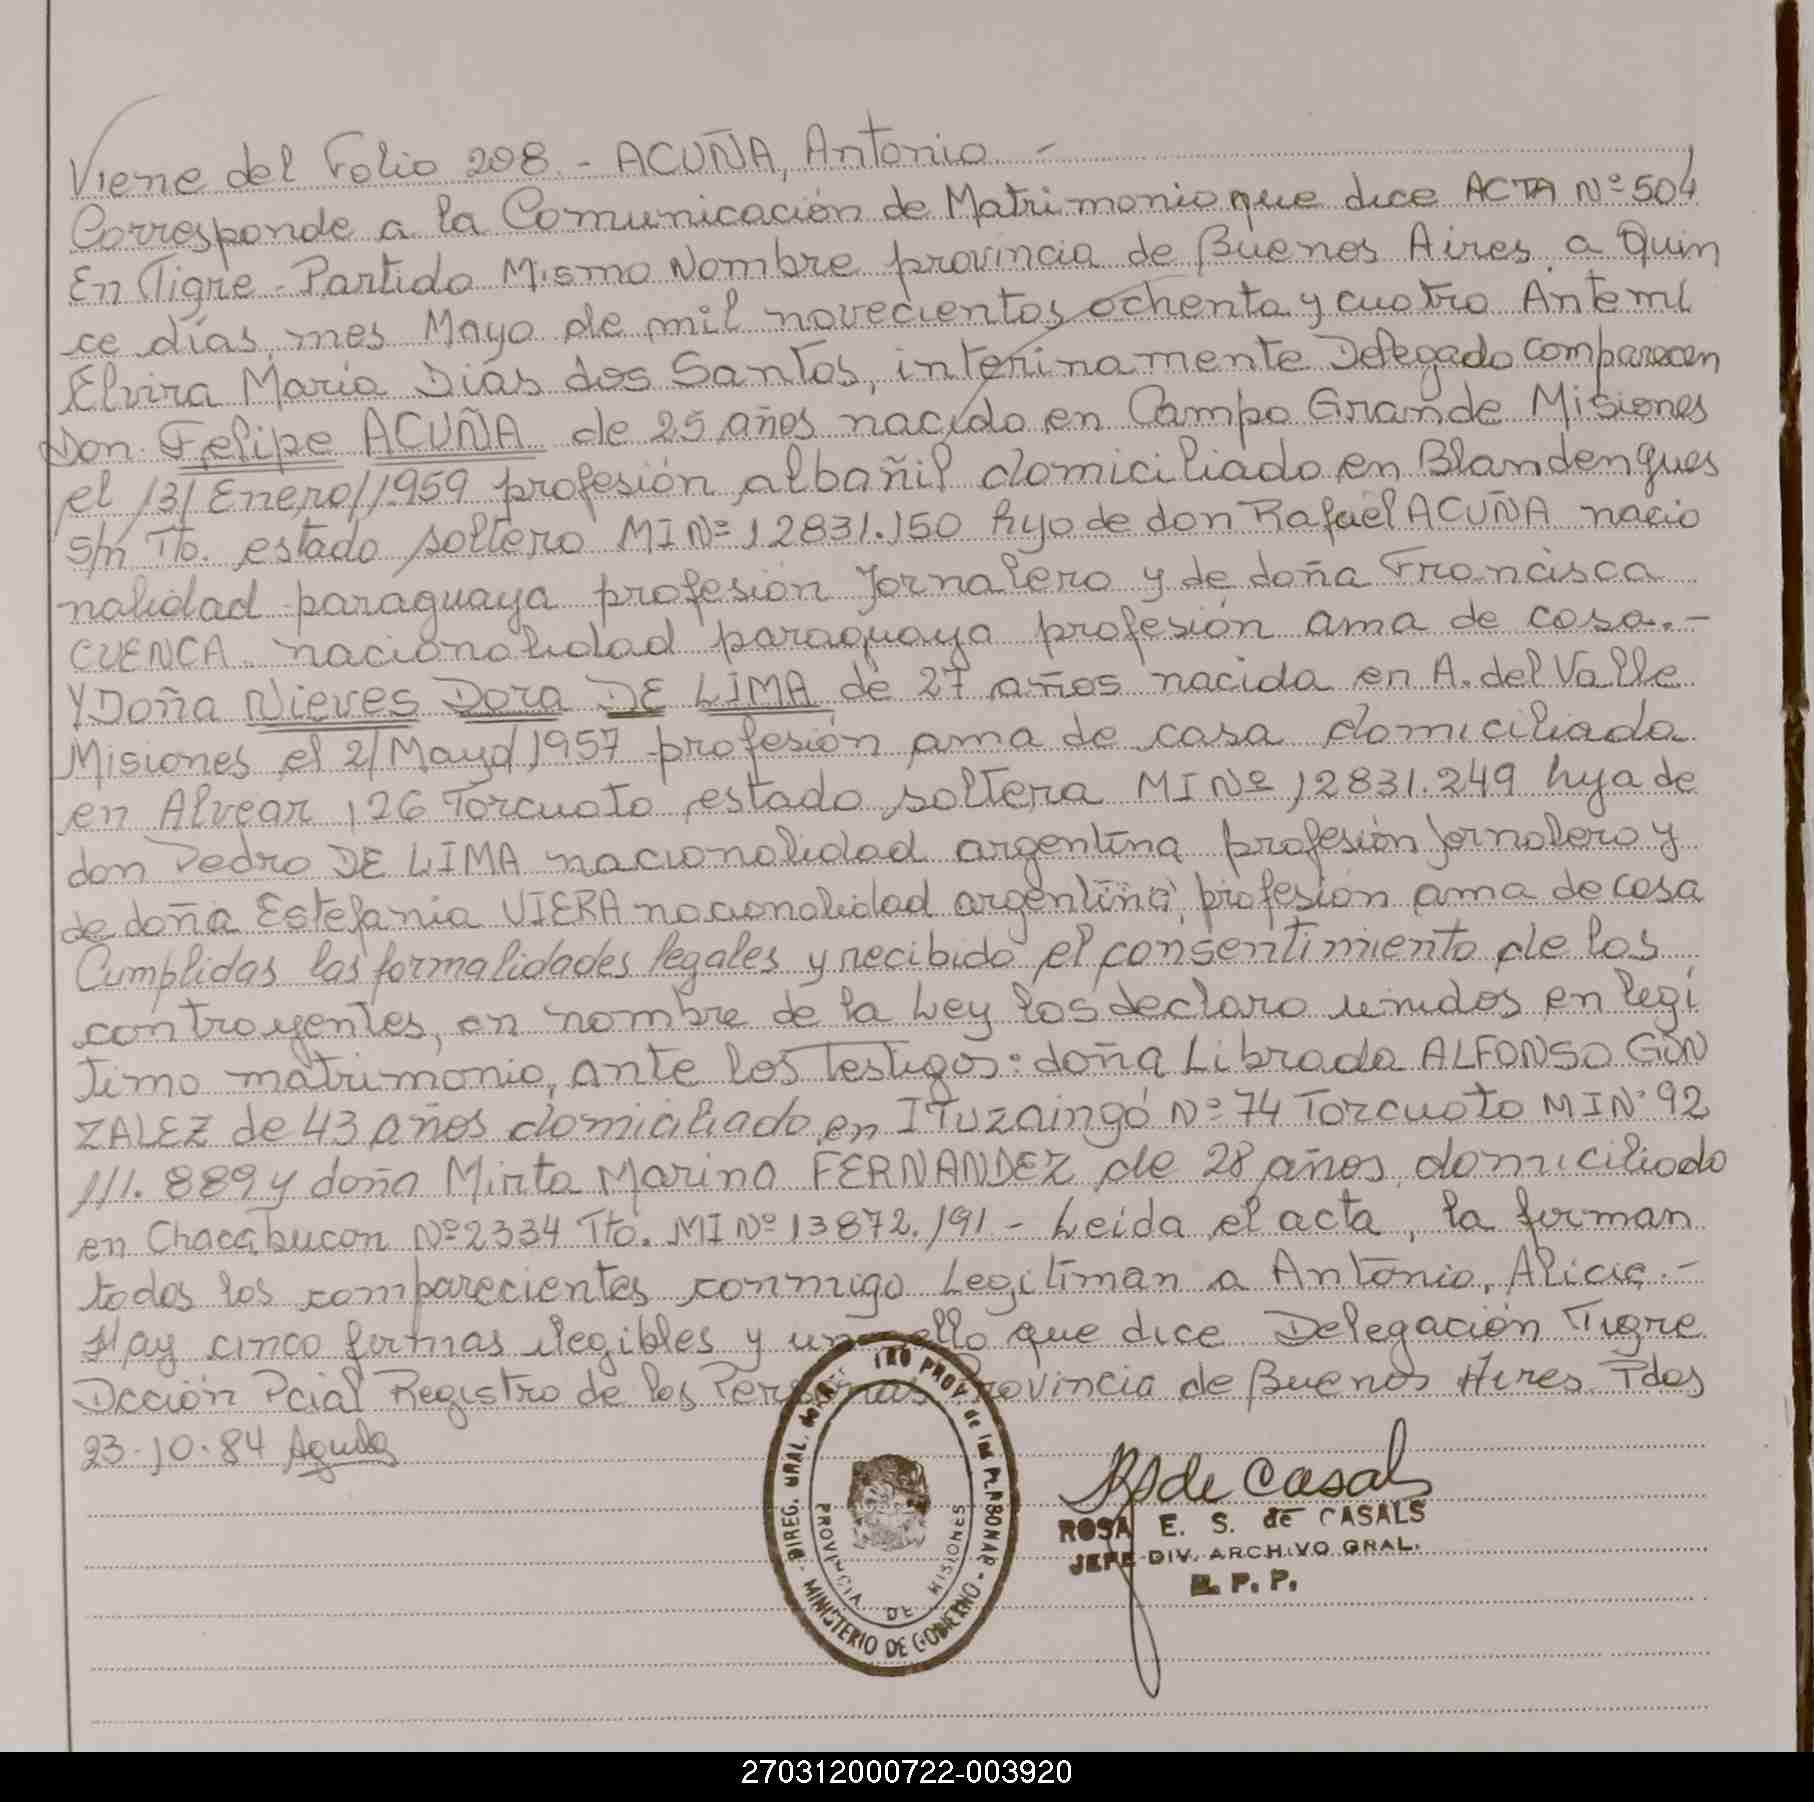 Viene del Folio 208.- ACUÑA, Antonio -
Corresponde a la Comunicación de Matrimonio que dice ACTA Nº 504
En Tigre. Partido Mismo Nombre provincia de Buenos Aires a Quin
ce días, mes Mayo de mil novecientos ochenta y cuatro Antemí
Elvira María Dias dos Santos, interinamente Delegado comparecen
Don Felipe ACUÑA de 25 años nacido en Campo Grande Misiones
el 13/Enero/1959 profesión albañil domiciliado en Blandengues
s/n Tto. estado soltero MI Nº 12831.150 hijo de don Rafael ACUÑA nacio
nalidad paraguaya profesión Jornalero y de doña Francisca
CUENCA nacionalidad paraguaya profesión ama de casa.-
Y Doña Nieves Dora DE LIMA de 27 años nacida en A. del Valle
Misiones el 2/Mayo/1957 profesión ama de casa domiciliada
en Alvear 126 Torcuato estado soltera MI Nº 12831.249 hija de
don Pedro DE LIMA nacionalidad argentina profesión Jornalero y
de doña Estefania VIERA nacionalidad argentina, profesión ama de casa
Cumplidas las formalidades legales y recibido el consentimiento de los
contrayentes, en nombre de la Ley los declaro unidos en legí
timo matrimonio, ante los Testigos: doña Librada ALFONSO GON
ZALEZ de 43 años domiciliado en ITuzaingó Nº 74 Torcuato MI Nº 92
111.889 y doña Mirta Marina FERNANDEZ de 28 años, domiciliado
en Chacabucon Nº 2334 Tto. MI Nº 13872.191 - Leida el acta, la firman
todos los comparecientes conmigo Legitiman a Antonio, Alicia.-
Hay cinco firmas ilegibles y un sello que dice Delegación Tigre
Dcción Pcial Registro de las Personas Provincia de Buenos Aires. Pdas
23.10.84
DIREC. GRAL. de PROV. de las PERSONAS - MINISTERIO DE GOBIERNO -
PROVINCIA DE MISIONES
RS de Casals
ROSA E. S. de CASALS
JEFE DIV. ARCHIVO GRAL.
R. P. P.
270312000722-003920